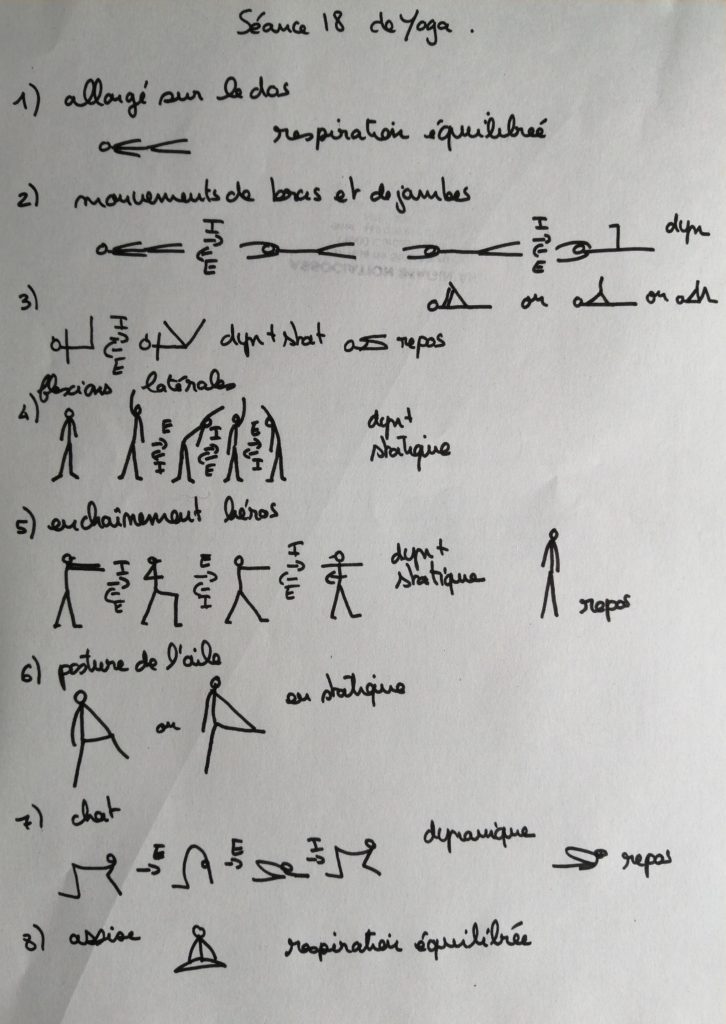 Séance 18 de Yoga.
1) allongé sur le dos
respiration équilibreé
2) mouvements de bras et de jambes
I
E
I
E
dyn
3)
I
E
dyn + stat
repos
ou
ou
4) flexions latérales
E
I
I
E
E
I
dyn +
statique
5) enchaînement héros
I
E
E
I
I
E
dyn +
statique
repos
6) posture de l'aile
ou
en statique
7) chat
E
E
I
dynamique
repos
8) assise
respiration équilibrée